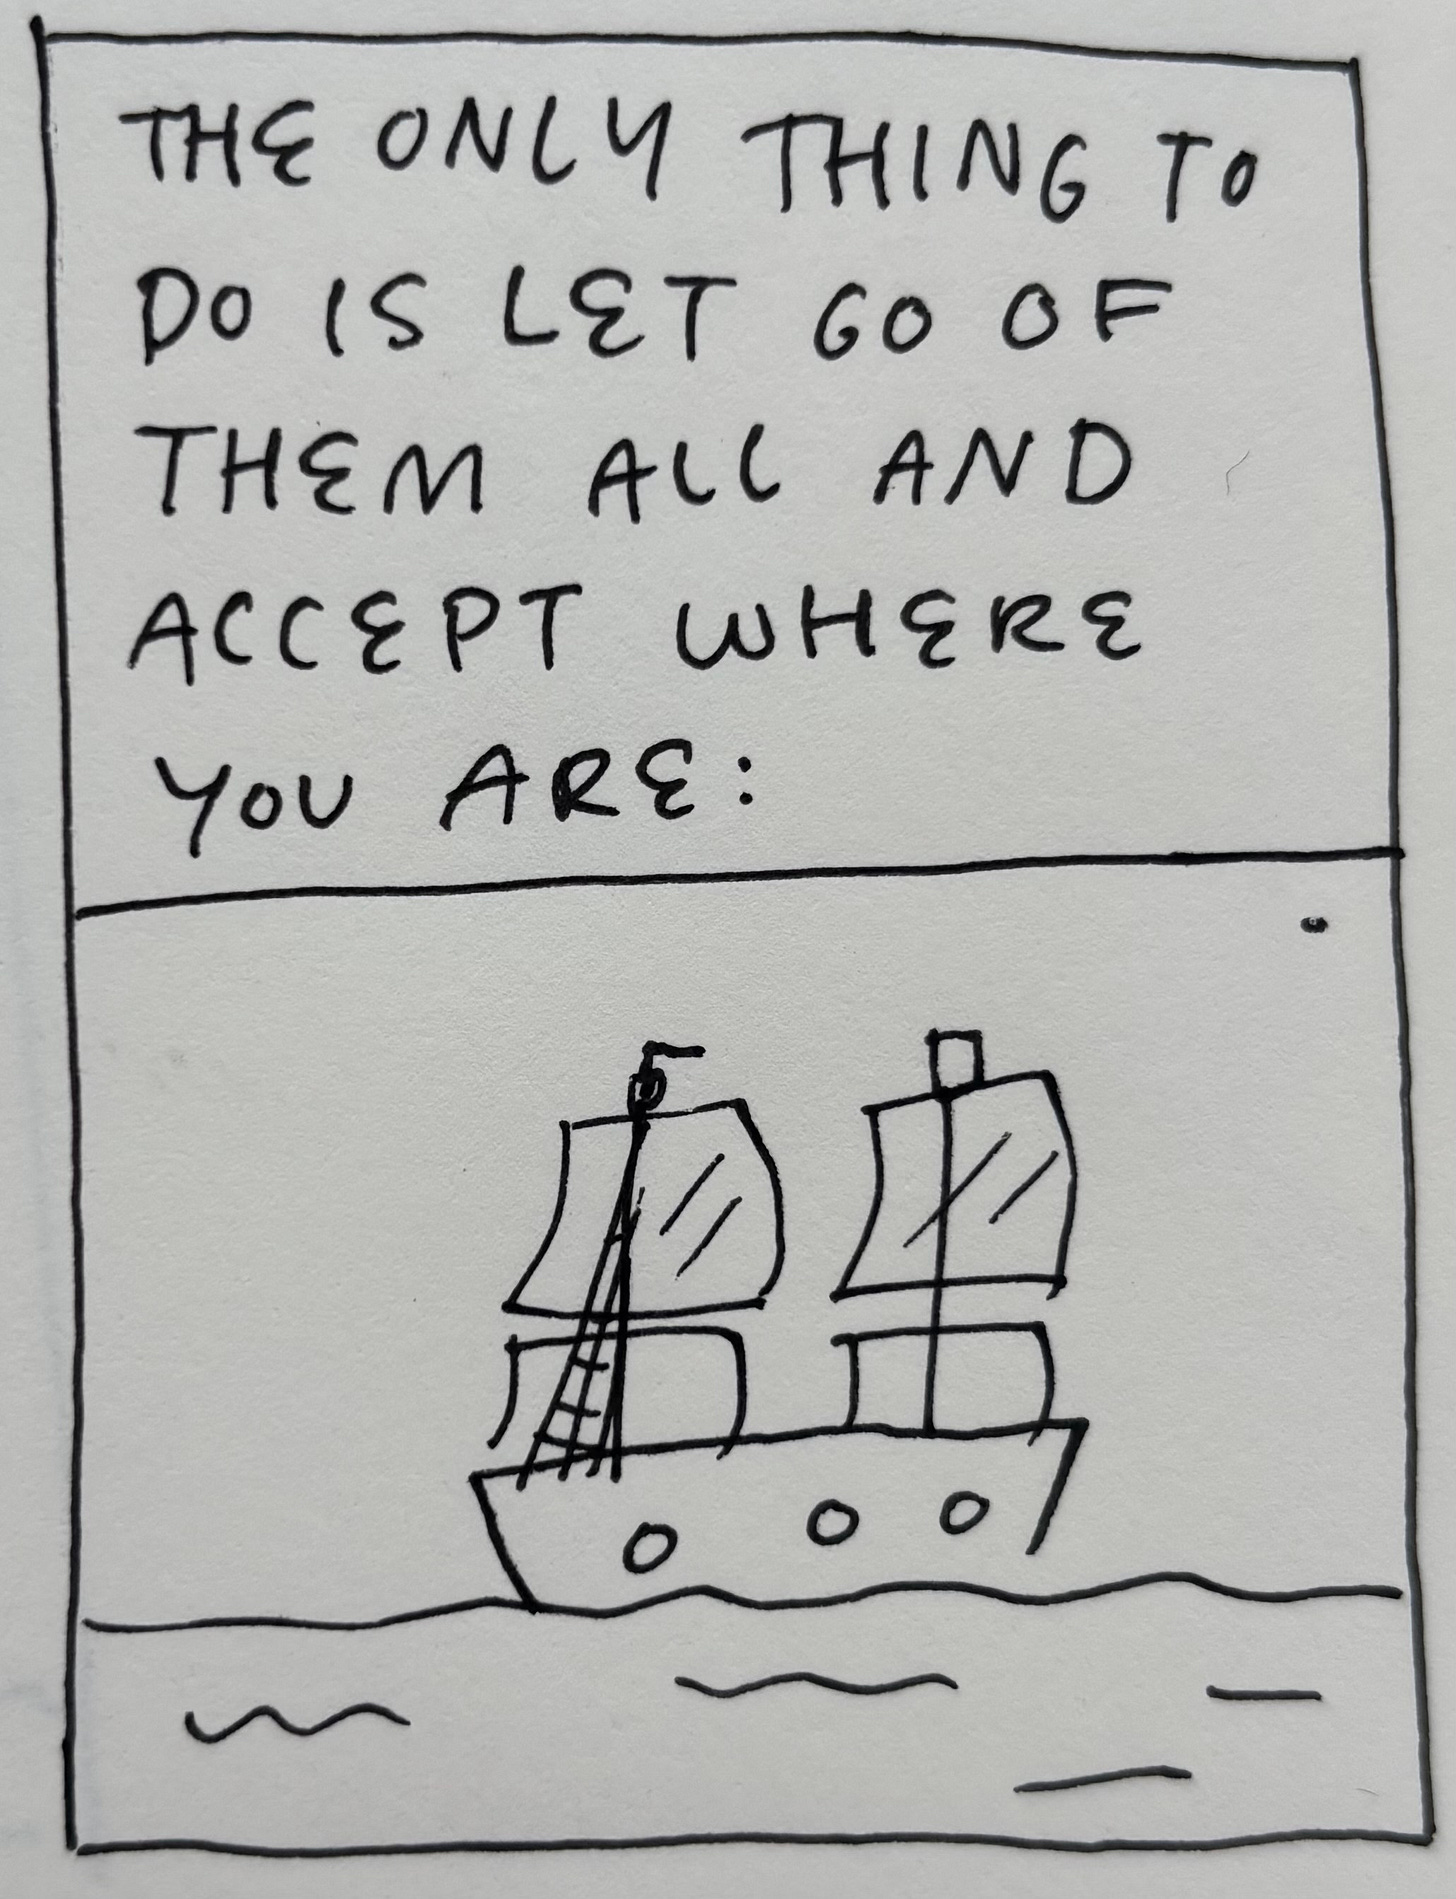 THE ONLY THING TO
DO IS LET GO OF
THEM ALL AND
ACCEPT WHERE
YOU ARE: